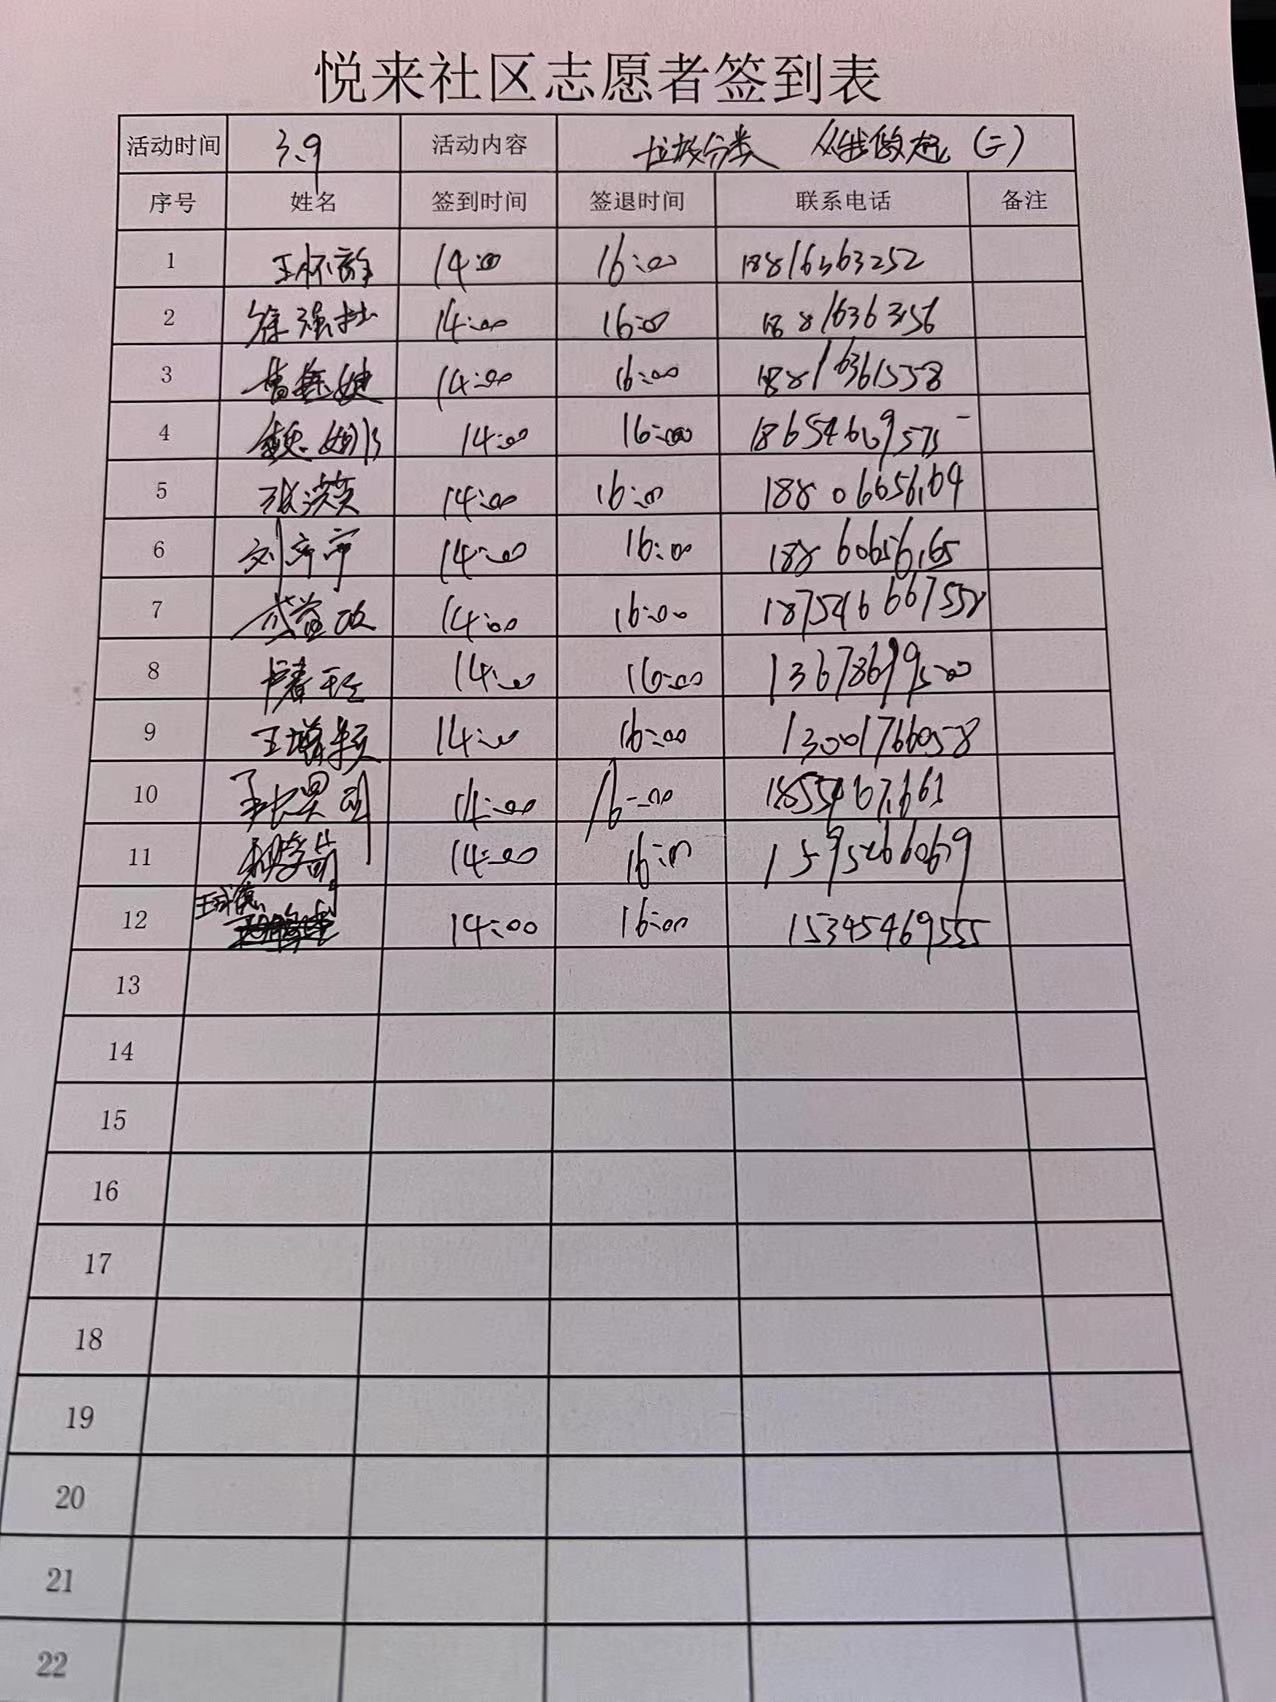 悦来社区志愿者签到表
活动时间 3.9 活动内容 垃圾分类 从我做起 (二)
序号 姓名 签到时间 签退时间 联系电话 备注
1 14:00 16:00 18816363252
2 徐强 14:00 16:00 18816363156
3 14:00 16:00 18816361558
4 14:00 16:00
5 张洪英 14:00 16:00 18806656164
6 刘 14:00 16:00 18860656165
7 14:00 16:00
8 14:00 16:00 13678619500
9 王增 14:00 16:00 13001766058
10 14:00 16:00 18554671661
11 14:00 16:00
12 14:00 16:00 15345469555
13
14
15
16
17
18
19
20
21
22